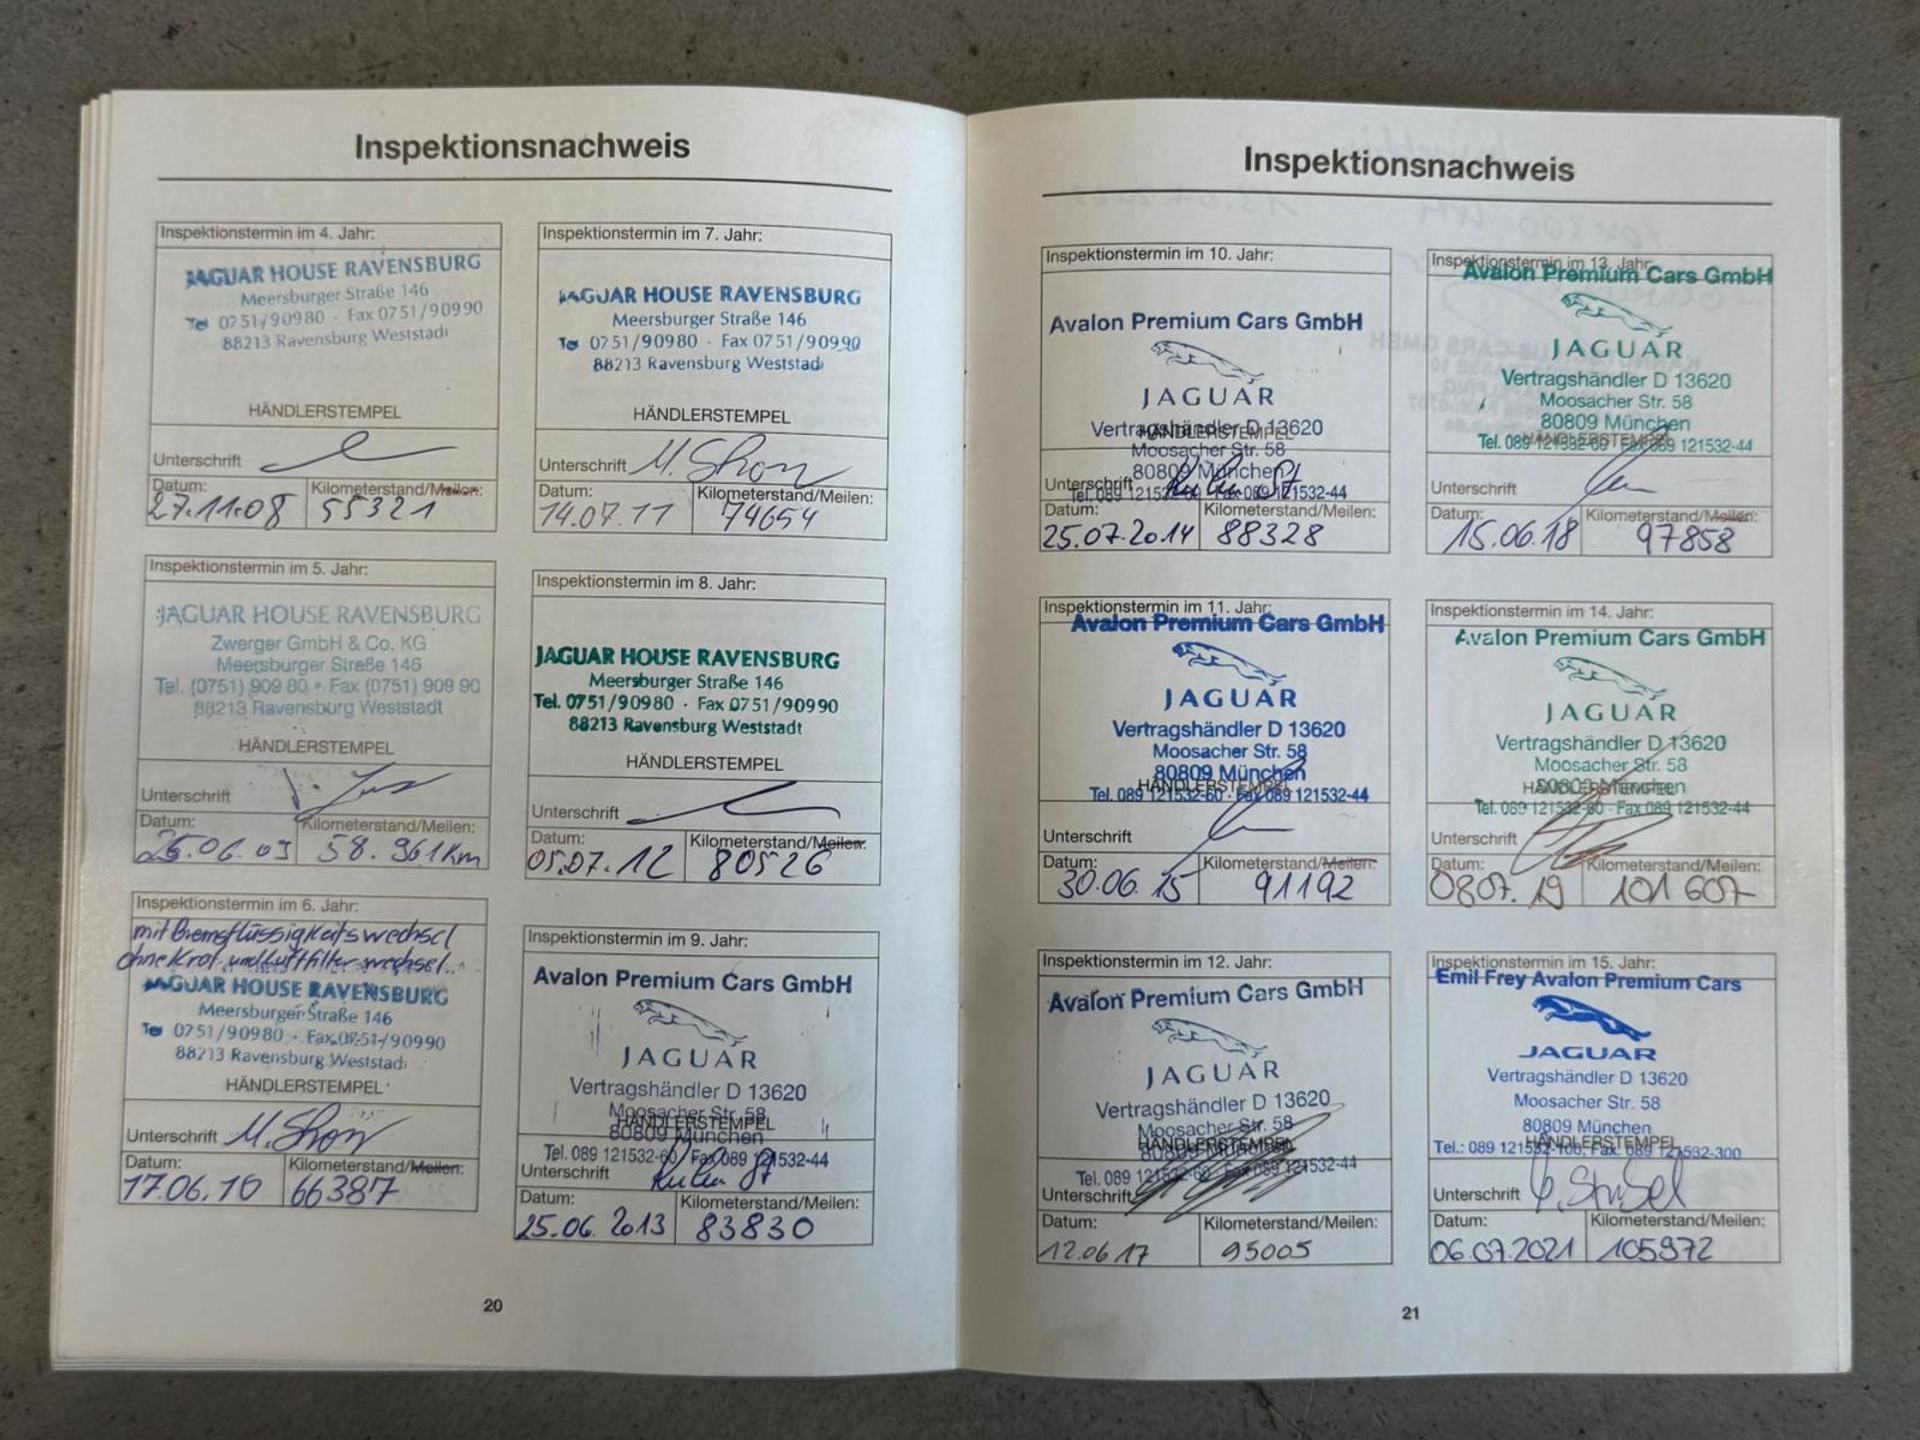 Inspektionsnachweis
Inspektionstermin im 4. Jahr:
JAGUAR HOUSE RAVENSBURG
Meersburger Straße 146
Tel 0751/90980 - Fax 0751/90990
88213 Ravensburg Weststadt
HÄNDLERSTEMPEL
Unterschrift
Datum: Kilometerstand/Meilen:
27.11.08 55321
Inspektionstermin im 5. Jahr:
JAGUAR HOUSE RAVENSBURG
Zwerger GmbH & Co. KG
Meersburger Straße 146
Tel. (0751) 909 80 • Fax (0751) 909 90
88213 Ravensburg Weststadt
HÄNDLERSTEMPEL
Unterschrift
Datum: Kilometerstand/Meilen:
25.06.09 58.961Km
Inspektionstermin im 6. Jahr:
mit Bremsflüssigkeitswechsel
ohne Kraf. und Luftfilter wechsel.
JAGUAR HOUSE RAVENSBURG
Meersburger Straße 146
Tel 0751/90980 - Fax 0751/90990
88213 Ravensburg Weststadt
HÄNDLERSTEMPEL
Unterschrift
Datum: Kilometerstand/Meilen:
17.06.10 66387
Inspektionstermin im 7. Jahr:
JAGUAR HOUSE RAVENSBURG
Meersburger Straße 146
Tel 0751/90980 · Fax 0751/90990
88213 Ravensburg Weststadt
HÄNDLERSTEMPEL
Unterschrift
Datum: Kilometerstand/Meilen:
14.07.11 74654
Inspektionstermin im 8. Jahr:
JAGUAR HOUSE RAVENSBURG
Meersburger Straße 146
Tel. 0751/90980 · Fax 0751/90990
88213 Ravensburg Weststadt
HÄNDLERSTEMPEL
Unterschrift
Datum: Kilometerstand/Meilen:
05.07.12 80526
Inspektionstermin im 9. Jahr:
Avalon Premium Cars GmbH
JAGUAR
Vertragshändler D 13620
Moosacher Str. 58
HÄNDLERSTEMPEL
80809 München
Tel. 089 121532-60 Fax 089 121532-44
Unterschrift
Datum: Kilometerstand/Meilen:
25.06.2013 83830
20
Inspektionsnachweis
Inspektionstermin im 10. Jahr:
Avalon Premium Cars GmbH
JAGUAR
Vertragshändler D 13620
HÄNDLERSTEMPEL
Moosacher Str. 58
80809 München
Unterschrift
Tel. 089 121532-60 Fax 089 121532-44
Datum: Kilometerstand/Meilen:
25.07.2014 88328
Inspektionstermin im 11. Jahr:
Avalon Premium Cars GmbH
JAGUAR
Vertragshändler D 13620
Moosacher Str. 58
80809 München
HÄNDLERSTEMPEL
Tel. 089 121532-60 · Fax 089 121532-44
Unterschrift
Datum: Kilometerstand/Meilen:
30.06.15 91192
Inspektionstermin im 12. Jahr:
Avalon Premium Cars GmbH
JAGUAR
Vertragshändler D 13620
Moosacher Str. 58
HÄNDLERSTEMPEL
80809 München
Tel. 089 121532-60 Fax 089 121532-44
Unterschrift
Datum: Kilometerstand/Meilen:
12.06.17 95005
Inspektionstermin im 13. Jahr:
Avalon Premium Cars GmbH
JAGUAR
Vertragshändler D 13620
Moosacher Str. 58
80809 München
HÄNDLERSTEMPEL
Tel. 089 121532-60 Fax 089 121532-44
Unterschrift
Datum: Kilometerstand/Meilen:
15.06.18 97858
Inspektionstermin im 14. Jahr:
Avalon Premium Cars GmbH
JAGUAR
Vertragshändler D 13620
Moosacher Str. 58
80809 München
HÄNDLERSTEMPEL
Tel. 089 121532-60 · Fax 089 121532-44
Unterschrift
Datum: Kilometerstand/Meilen:
08.07.19 101 607
Inspektionstermin im 15. Jahr:
Emil Frey Avalon Premium Cars
JAGUAR
Vertragshändler D 13620
Moosacher Str. 58
80809 München
HÄNDLERSTEMPEL
Tel.: 089 121532-100, Fax: 089 121532-300
Unterschrift
Datum: Kilometerstand/Meilen:
06.07.2021 105972
21